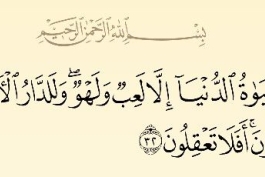 بِسْمِ اللَّهِ الرَّحْمَٰنِ الرَّحِيمِ
الدُّنْيَا إِلَّا لَعِبٌ وَلَهْوٌ ۖ وَلَلدَّارُ
أَفَلَا تَعْقِلُونَ ﴿٣٢﴾